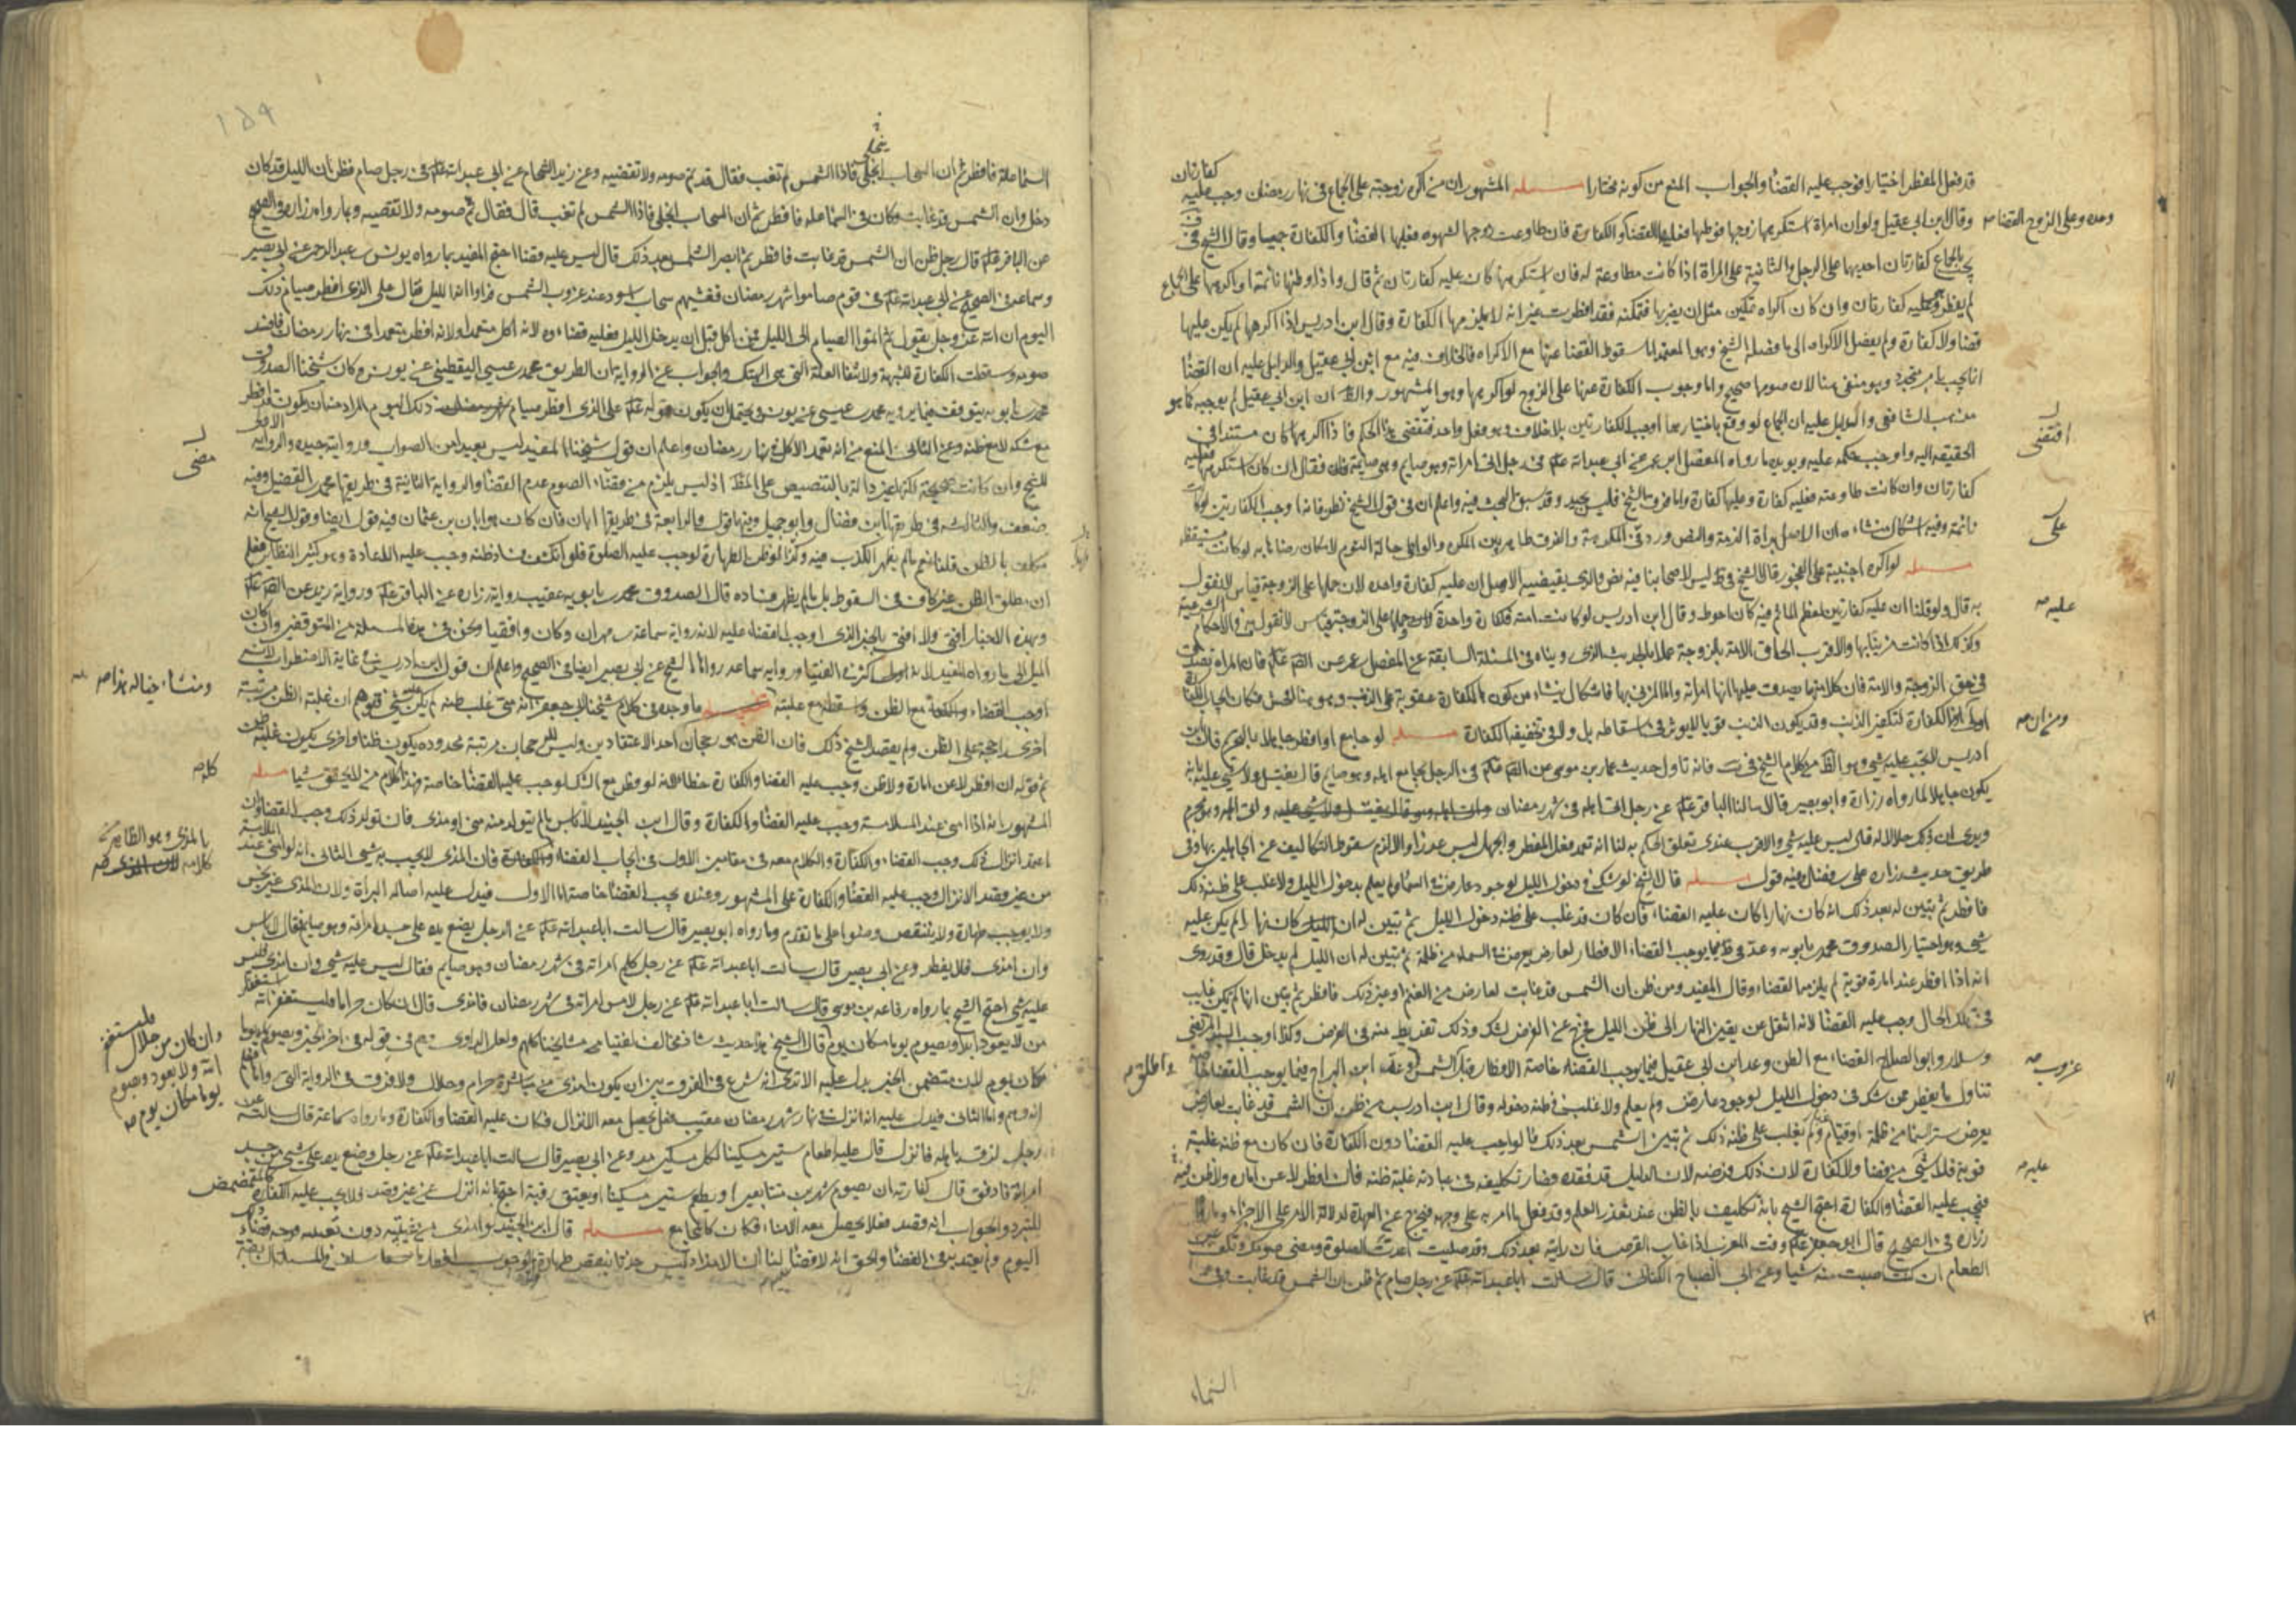 كفارتان
قد فعل المفطر اختيارا فوجب عليه القضاء والجواب المنع من كونه مختارا مسئله المشهور ان من اكره زوجته على الجماع في نهار رمضان وجب عليه
وقال ابن ابي عقيل ولو ان امراة استكرهها زوجها فوطئها فعليها القضاء والكفارة فان طاوعت زوجها لشهوه فعليها القضاء والكفارة جميعا وقال الشيخ في
يجب بالجماع كفارتان احديهما على الرجل والثانية على المراة اذا كانت مطاوعة له فان استكرهها كان عليه كفارتان ثم قال واذا وطئها نائمة او اكرهها على الجماع
لم يفطر وعليه كفارتان وان كان اكراه تمكين مثل ان يضربها فتمكنه فقد افطرت غير انه لا يلزمها الكفارة وقال ابن ادريس اذا اكرهها لم يكن عليها
قضاء ولا كفارة ولم يفصل الاكراه الى ما فصله الشيخ وهو المعتمد اما سقوط القضاء عنها مع الاكراه فالخلاف فيه مع ابن ابي عقيل والدليل عليه ان القضاء
انما يجب بامر متجدد وهو منفي هنا لان صومها صحيح واما وجوب الكفارة عنها على الزوج لو اكرهها وهو المشهور والظ ان ابن ابي عقيل لم يوجبه كما هو
مذهب الشافعي والدليل عليه ان الجماع لو وقع باختيارهما اوجب الكفارتين بلا خلاف وهو فعل واحد فتقتضي هذا الحكم فاذا اكرهها كان مستندا في
الحقيقة اليه واوجب حكمه عليه ويؤيده ما رواه المفضل ابن عمر عن ابي عبد الله علم في رجل اتى امراته وهو صايم وهي صايمة فقال ان كان استكرهها فعليه
كفارتان وان كانت طاوعته فعليه كفارة وعليها كفارة واما فرق الشيخ فليس بجيد وقد سبق البحث فيه واعلم ان في قول الشيخ نظر فانه اوجب الكفارتين لو كانت
نائمة وفيه اشكال ينشاء من ان الاصل براة الذمة والنص ورد في المكرهة والفرق ظاهر بين المكره والواطي حالة النوم لامكان رضائها به لو كانت مستيقظة
مسئله لو اكره اجنبية على الفجور قال الشيخ في ط ليس لاصحابنا فيه نص والذي يقتضيه الاصل ان عليه كفارة واحده لان حملها على الزوجة قياس لا نقول
به قال ولو قلنا ان عليه كفارتين لعظم الماثم فيه كان احوط وقال ابن ادريس لو كانت امته فكفارة واحدة لان حملها على الزوجة قياس لا نقول به في الاحكام الشرعية
وكذلك اذا كانت مزنيا بها والاقرب الحاق الامة بالزوجة عملا بالحديث الذي رويناه في المسئلة السابقة عن المفضل بن عمر عن الصادق علم فان المراة تصدق
في حق الزوجة والامة فان كلا منهما يصدق عليها انها امراته واما المزني بها فاشكال ينشاء من كون الكفارة عقوبة على الذنب وهو هنا افحش فكان ايجاب الكفارة
اولى الكفارة لتكفير الذنب وقد يكون الذنب قويا لا يوثر في اسقاطه بل ولا في تخفيفه الكفارة مسئله لو جامع او افطر جاهلا بالتحريم قال ابن
ادريس لا يجب عليه شي وهو الظ من كلام الشيخ في يب فانه تاول حديث عمار بن موسى عن الصادق علم في الرجل يجامع اهله وهو صايم قال يغتسل ولا شي عليه بانه
يكون جاهلا لما رواه زرارة وابو بصير قالا سالنا الباقر علم عن رجل اتى اهله في شهر رمضان واتى اهله وهو محرم
ويرى ان ذلك حلال له قال ليس عليه شي والاقرب عندي تعلق الحكم به لنا انه تعمد فعل المفطر والجهل ليس عذرا والا لزم سقوط التكاليف عن الجاهلين بها وفي
طريق حديث زرارة علي بن فضال وفيه قول مسئله قال الشيخ لو شك في دخول الليل لوجود عارض في السماء ولم يعلم بدخول الليل ولا غلب على ظنه ذلك
فافطر ثم تبين له بعد ذلك انه كان نهارا كان عليه القضاء فان كان قد غلب على ظنه دخول الليل ثم تبين له انه كان نهارا لم يكن عليه
شي وهو اختيار الصدوق محمد بن بابويه وعد في ط مما يوجب القضاء الافطار لعارض يعرض في السماء من ظلمة ثم تبين له ان الليل لم يدخل قال وقد روي
انه اذا افطر عند امارة قوية لم يلزمه القضاء وقال المفيد ومن ظن ان الشمس قد غابت لعارض من الغيم او غير ذلك فافطر ثم تبين انها لم تكن غابت
في تلك الحال وجب عليه القضاء لانه انتقل عن يقين النهار الى ظن الليل فخرج عن الفرض بشك وذلك تفريط منه في الفرض وكذا اوجب السيد المرتضى
وسلار وابو الصلاح القضاء مع الظن وعد ابن ابي عقيل فيما يوجب القضاء خاصة الافطار قبل الشمس وعد ابن البراج فيما يوجب القضاء
تناول ما يفطر ممن شك في دخول الليل لوجود عارض ولم يعلم ولا غلب في ظنه دخوله وقال ابن ادريس من ظن ان الشمس قد غابت لعارض
يعرض ستر السماء من ظلمة او قتام ولم يغلب على ظنه ذلك ثم تبين الشمس بعد ذلك فالواجب عليه القضاء دون الكفارة فان كان مع ظنه غلبة
قوية فلا شي من قضاء ولا كفارة لان ذلك فرضه لان الدليل قد فقده فصار تكليفه في عبادته غلبة ظنه فان افطر لا عن امارة ولا ظن
فيجب عليه القضاء والكفارة احتج الشيخ بانه تكليف بالظن عند تعذر العلم وقد فعل ما امر به على وجهه فيخرج عن العهدة لدلالة الامر على الاجزاء وما رواه
زرارة في الصحيح قال ابو جعفر علم وقت المغرب اذا غاب القرص فان رايته بعد ذلك وقد صليت اعدت الصلوة ومضى صومك وتكف عن
الطعام ان كنت اصبت منه شيا وعن ابي الصباح الكناني قال سالت ابا عبد الله علم عن رجل صام ثم ظن ان الشمس قد غابت وفي
السماء
وحده وعلى الزوج القضاء
اقتضى
على
عليه
ومن ان
غروب
عليه
١٥٩
السماء علة فافطر ثم ان السحاب انجلى فاذا الشمس لم تغب فقال قد تم صومه ولا تقضيه وعن زيد الشحام عن ابي عبد الله علم في رجل صام فظن ان الليل قد كان
دخل وان الشمس قد غابت وكان في السماء علة فافطر ثم ان السحاب انجلى فاذا الشمس لم تغب قال فقال تم صومه ولا تقضيه وبما رواه زرارة في الصحيح
عن الباقر علم قال رجل ظن ان الشمس قد غابت فافطر ثم ابصر الشمس بعد ذلك قال ليس عليه قضاء احتج المفيد بما رواه يونس بن عبد الرحمن عن ابي بصير
وسماعة في الصحيح عن ابي عبد الله علم في قوم صاموا شهر رمضان فغشيهم سحاب اسود عند غروب الشمس فراوا انه الليل فقال على الذي افطر صيام ذلك
اليوم ان الله عز وجل يقول ثم اتموا الصيام الى الليل فمن اكل قبل ان يدخل الليل فعليه قضاءوه لانه اكل متعمدا ولانه افطر متعمدا في نهار رمضان فافسد
صومه وسقطت الكفارة للشبهة ولانتفاء العلة التي هي الهتك والجواب عن الرواية ان الطريق محمد بن عيسى اليقطيني عن يونس وكان شيخنا الصدوق
محمد بن بابويه يتوقف فيما يرويه محمد بن عيسى عن يونس ويحتمل ان يكون قوله علم على الذي افطر صيام ذلك اليوم
مع شكه لا مع ظنه وعن الثاني المنع من انه تعمد الاكل في نهار رمضان واعلم ان قول شيخنا المفيد ليس بعيدا من الصواب وروايته جيده والرواية
للشيخ وان كانت صحيحة لكنها غير دالة بالتنصيص على المط اذ ليس يلزم من الصوم عدم القضاء والرواية الثانية في طريقها محمد بن الفضيل وفيه
ضعف والثالثة في طريقها ابن فضال وابو جميل وفيهما قول والرابعة في طريقها ابان فان كان هو ابان بن عثمان ففيه قول ايضا وقول الشيخ انه
مكلف بالظن قلنا نعم ما لم يظهر الكذب فيه وكذا لو ظن الطهارة لوجب عليه الصلوة فلو انكشف فساد ظنه وجب عليه الاعادة وهو كثير النظاير فعلم
ان مطلق الظن غير كاف في السقوط بل ما لم يظهر فساده قال الصدوق محمد بن بابويه عقيب رواية زرارة عن الباقر علم ورواية زيد عن الصادق علم
وبهذه الاخبار افتي ولا افتي بالخبر الذي اوجب القضاء عليه لانه رواية سماعة بن مهران وكان واقفيا ونحن في هذه المسئلة من المتوقفين وان كان
الميل الى ما رواه المفيد ورواية سماعة رواها الشيخ عن ابي بصير ايضا في الصحيح واعلم ان قول ابن ادريس في غاية الاضطراب
اوجب القضاء والكفارة مع الظن واسقطه مع غلبته ما وجده في كلام شيخنا ابي جعفر انه متى غلب ظنه لم يكن عليه شي فتوهم ان غلبة الظن مرتبة
اخرى راجحة على الظن ولم يقصد الشيخ ذلك فان الظن هو رجحان احد الاعتقادين وليس للرجحان مرتبة محدوده يكون ظنا واخرى يكون غلبة
ثم قوله ان افطر لا عن امارة ولا ظن وجب عليه القضاء والكفارة خطا لانه لو فطر مع الشك لوجب عليه القضاء خاصة وهذا كلام من لا يحقق شيا مسئله
المشهور انه اذا امنى عند الملامسة وجب عليه القضاء والكفارة وقال ابن الجنيد لا باس ما لم يتولد منه مني او مذي فان تولد ذلك وجب القضاء وان
اعتمد انزال ذلك وجب القضاء والكفارة والكلام معه في مقامين الاول في ايجاب القضاء فان المذي لا يجب به شي الثاني انه لو امنى عند
من غير قصد الانزال وجب عليه القضاء والكفارة على المشهور وعنده يجب القضاء خاصة اما الاول فيدل عليه اصالة البراة ولان المذي غير نجس
ولا يوجب طهارة ولا ينقض وضوءا على ما تقدم وما رواه ابو بصير قال سالت ابا عبد الله علم عن الرجل يضع يده على جسد امراته وهو صايم فقال لا باس
وان امذى فلا يفطر وعن ابي بصير قال سالت ابا عبد الله علم عن رجل كلم امراته في شهر رمضان وهو صايم فقال ليس عليه شي وان امذى فليس
عليه شي احتج الشيخ بما رواه رفاعة بن موسى قال سالت ابا عبد الله علم عن رجل لامس امراته في شهر رمضان فامذى قال ان كان حراما فليستغفر الله
من لا يعود ابدا ويصوم يوما مكان يوم قال الشيخ هذا حديث شاذ مخالف لفتيا مشايخنا كلهم ولعل الراوي وهم في قوله في اخر الخبر ويصوم يوما
مكان يوم لان متضمن الخبر يدل عليه الا ترى انه شرع في الفرق بين ان يكون امذى من مباشرة حرام وحلال ولا فرق في الرواية التي
انه وهم واما الثاني فيدل عليه انه انزل في نهار شهر رمضان عقيب فعل يحصل معه الانزال فكان عليه القضاء والكفارة وما رواه سماعة قال سالته
رجل لزق باهله فانزل قال عليه اطعام ستين مسكينا لكل مسكين مد وعن ابي بصير قال سالت ابا عبد الله علم عن رجل وضع يده على شي من جسد
امراته فادفق قال كفارته ان يصوم شهرين متتابعين او يطعم ستين مسكينا او يعتق رقبة احتج بانه انزل عن غير قصد ولا يجب عليه الكفارة كالمتمضمض
للتبرد والجواب انه قصد فعلا يحصل معه الامناء فكان كالمجامع مسئله قال ابن الجنيد لو امذى من تقبيله دون تعمده فوجه قضاء ذلك
اليوم ولم يعتد به في القضاء والحق انه لا قضاء لنا ان الامذاء ليس حدثا ينقض طهارة
مضى
ومنشاء خياله هذا
كله
بالمذي وهو الظاهر من
كلامه
وان كان من حلال فليستغفر
الله ولا يعود ويصوم
يوما مكان يوم